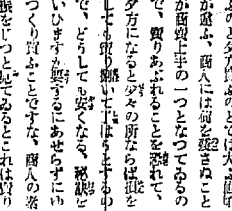 ふのと夕方買ふのとでは大
が違ふ、商人には荷を殘さぬこと
が商賣上手の一つとなつてゐるの
で、賣りあぶれることを恐れて、
夕方になると少々の所ならば損を
しても賣り捌いて了はうとするの
で、どうしても安くなる。秘訣を
いひますが要するにあせらずにゆ
つくり買ふことですな、商人の素
振をじつと見てゐるとこれは賣り